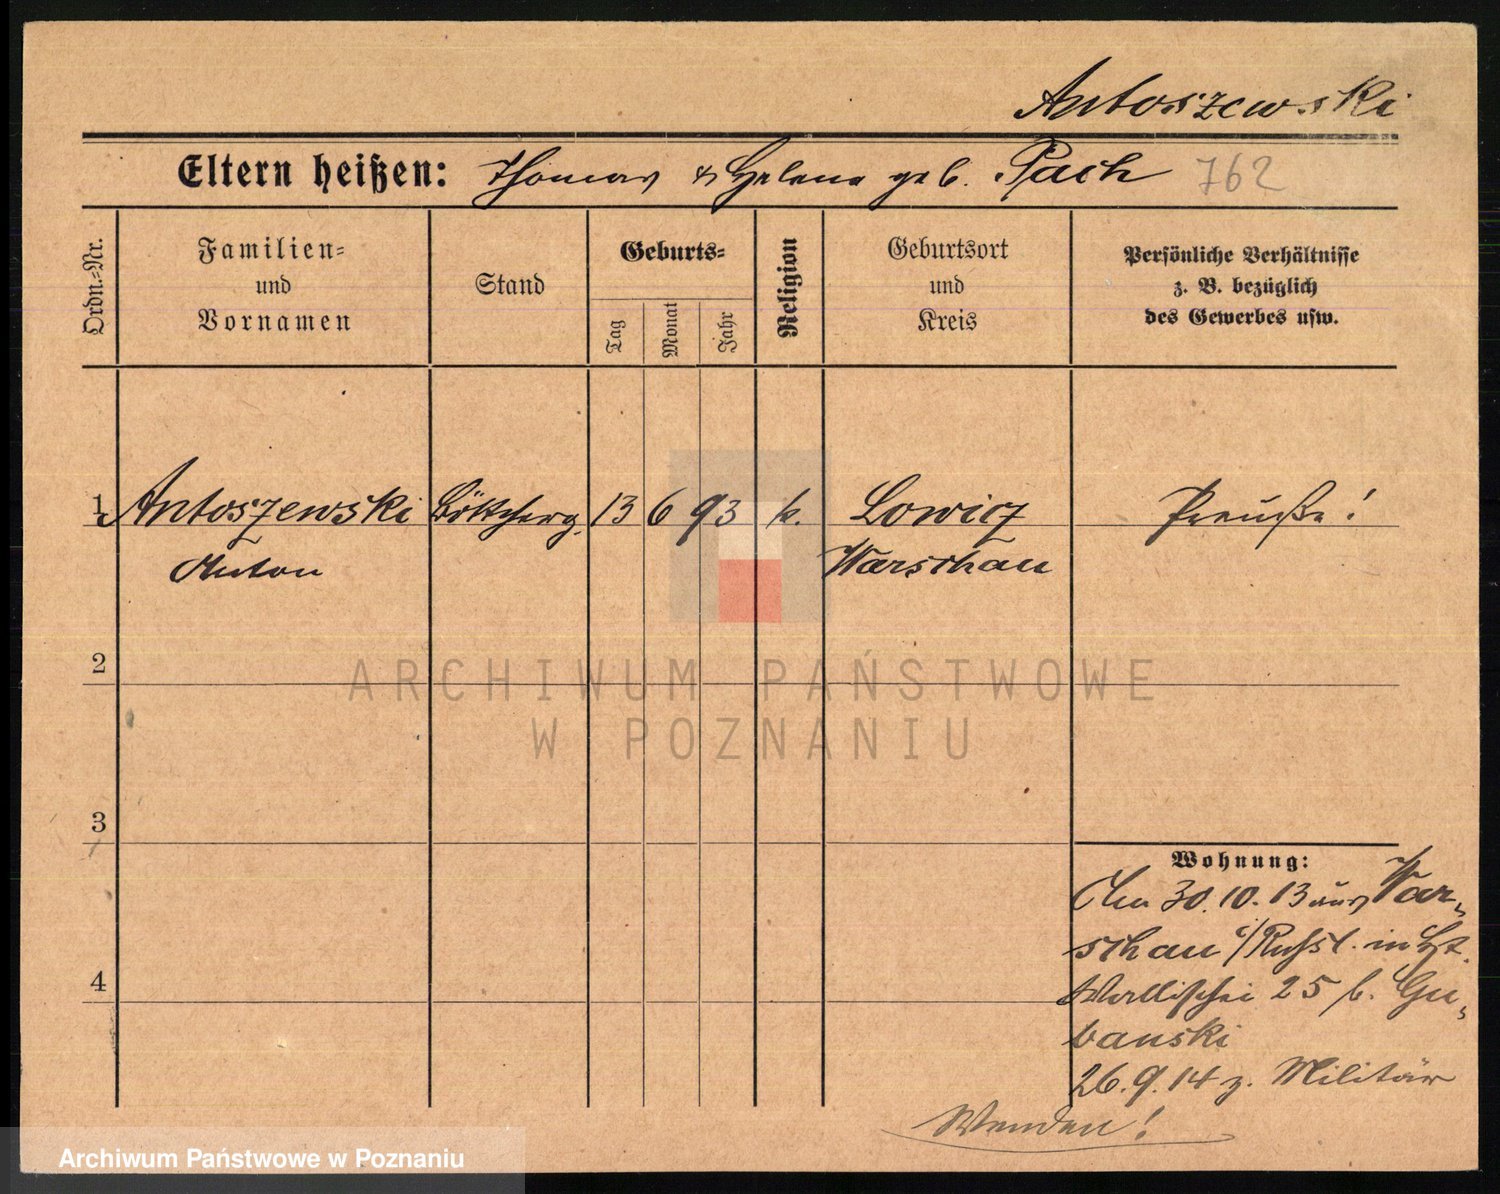 Antoszewski
Eltern heißen: Thomas & Helene geb. Pach 762
Ordn.-Nr.
Familien-
und
Vornamen
Stand
Geburts-
Tag
Monat
Jahr
Religion
Geburtsort
und
Kreis
Persönliche Verhältnisse
z. B. bezüglich
des Gewerbes usw.
1 Antoszewski Böttcherg. 13 6 93 k. Lowicz Preuße!
Anton Warschau
2
ARCHIWUM PAŃSTWOWE
W POZNANIU
3
Wohnung:
Am 30.10.13 aus War-
schau i/Russl. in
4
Wallischei 25 b. Gu-
banski
26.9.14 z. Militär
Wenden!
Archiwum Państwowe w Poznaniu